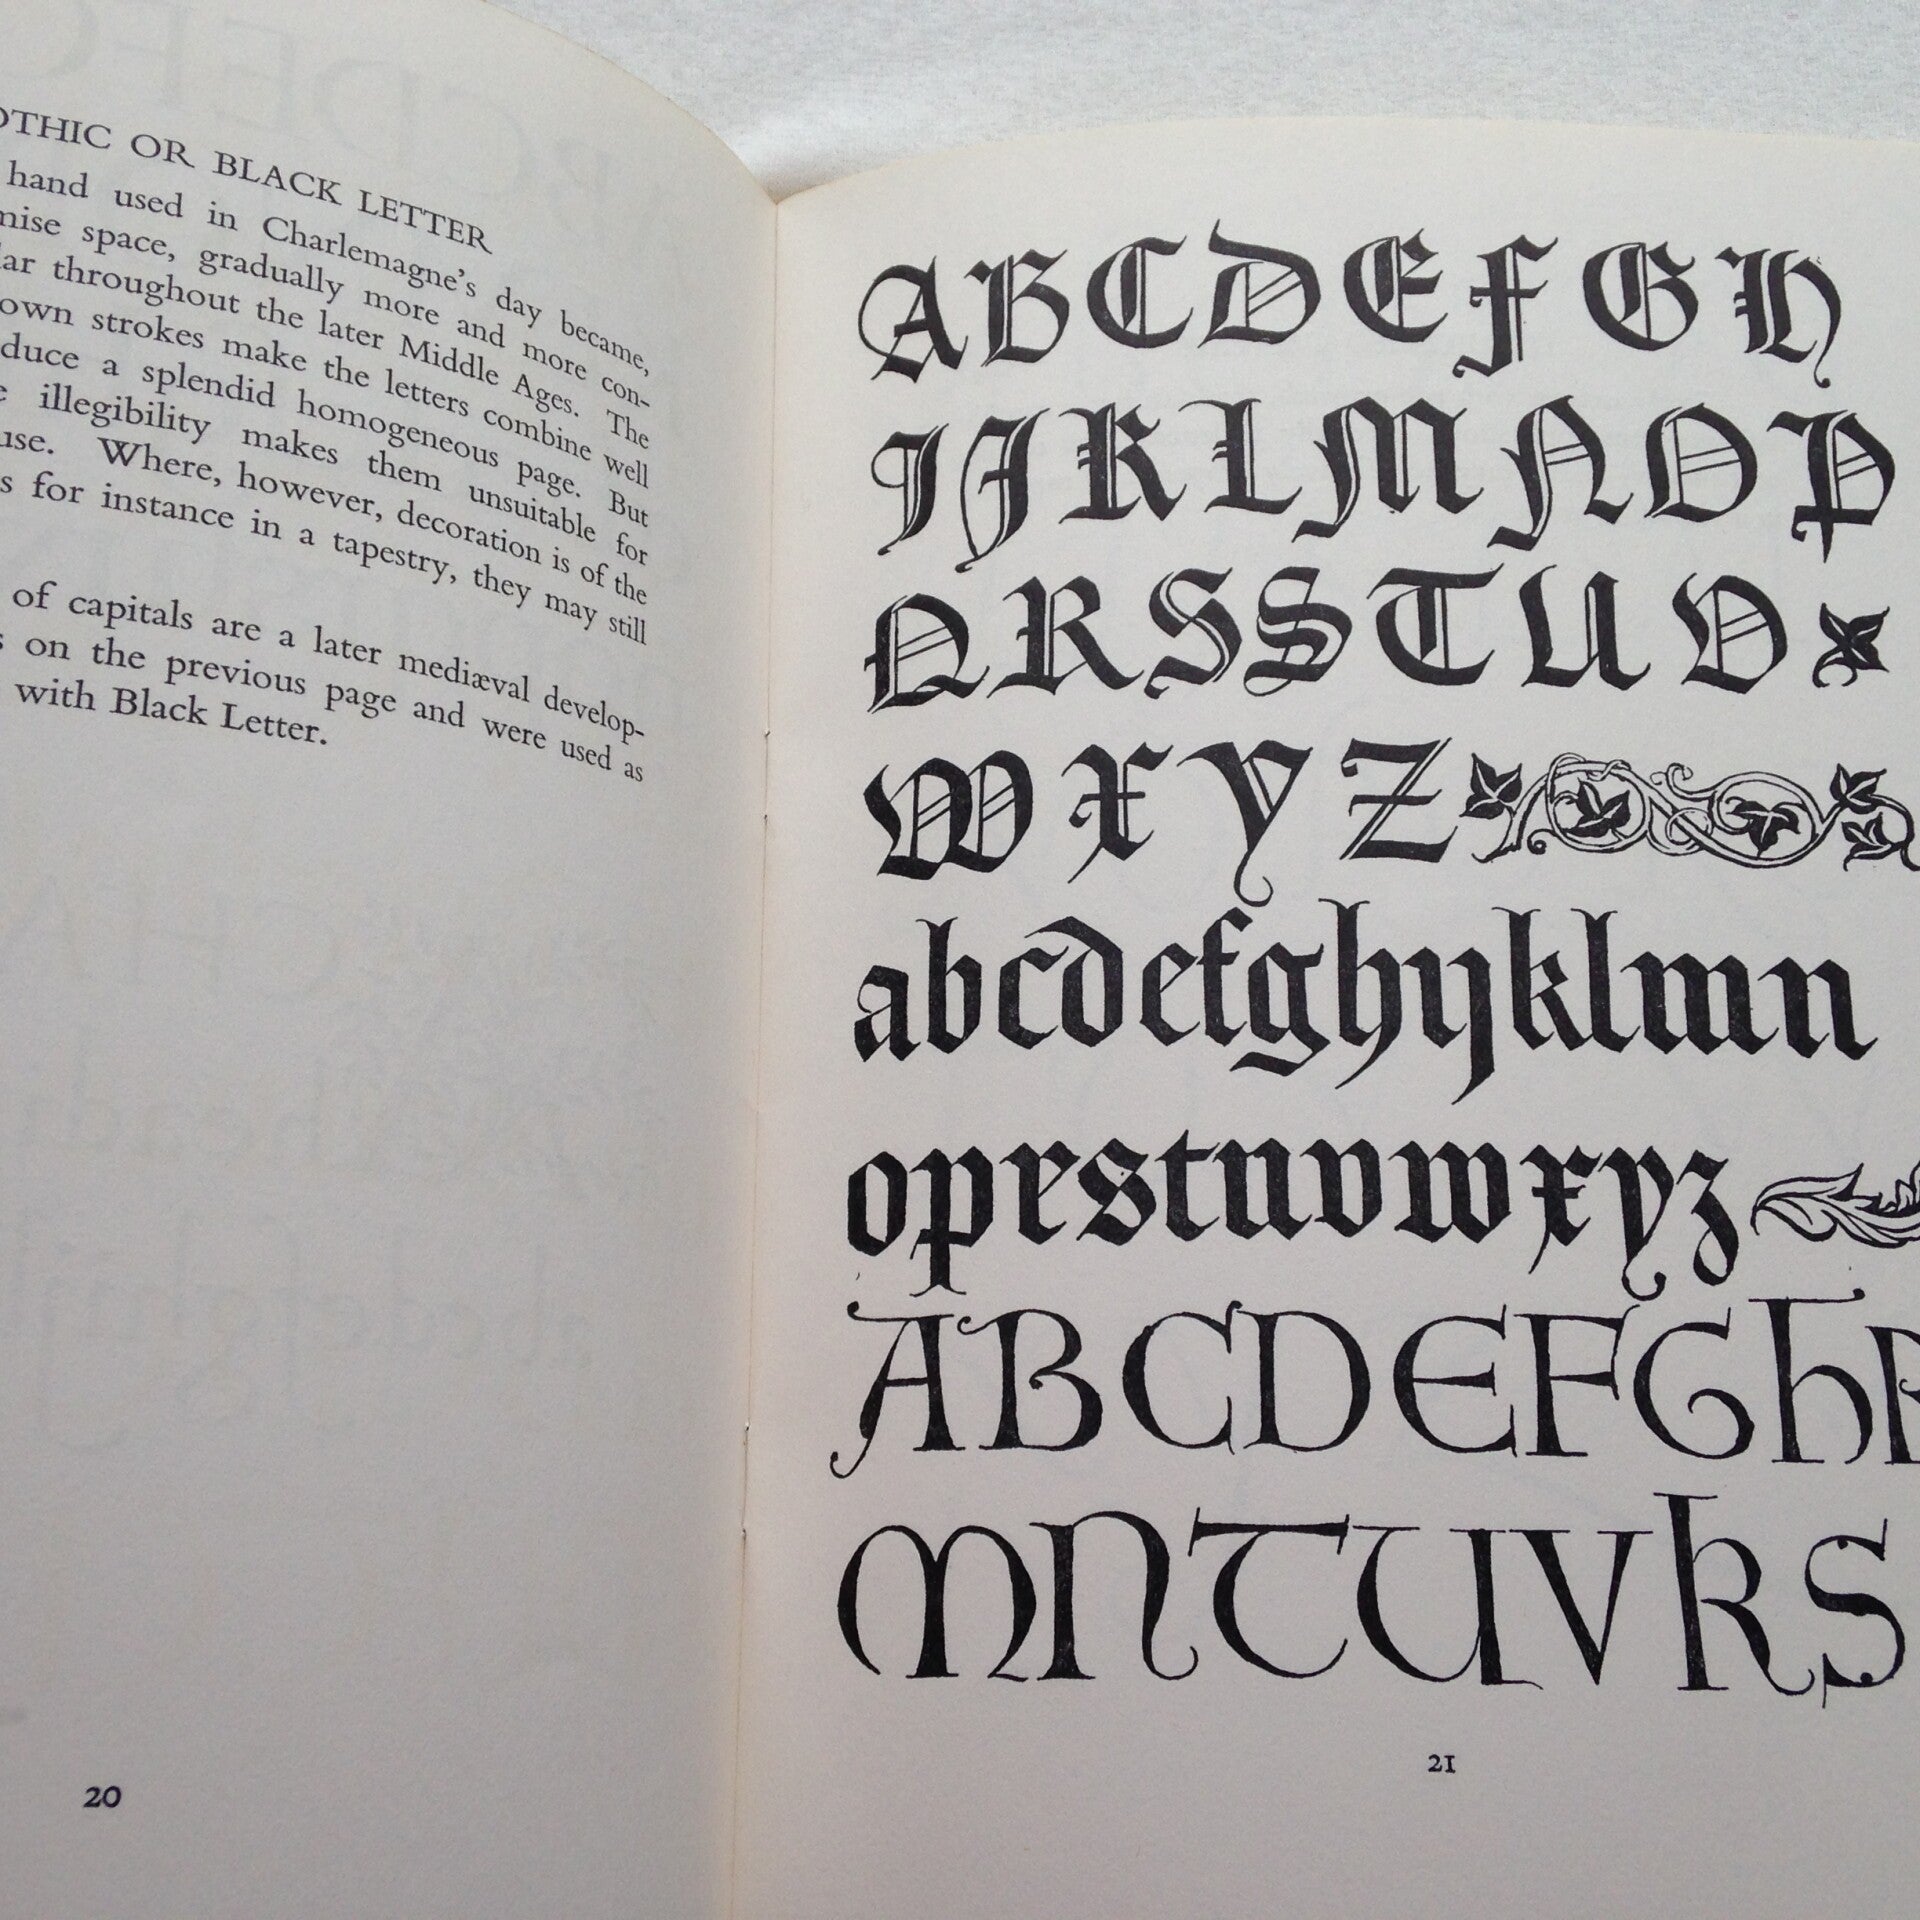 OTHIC OR BLACK LETTER
hand used in Charlemagne's day became,
mise space, gradually more and more con-
lar throughout the later Middle Ages. The
own strokes make the letters combine well
duce a splendid homogeneous page. But
e illegibility makes them unsuitable for
use. Where, however, decoration is of the
s for instance in a tapestry, they may still
of capitals are a later mediæval develop-
s on the previous page and were used as
with Black Letter.
20
ABCDEFGH
IJKLMNOP
QRSSTUV
WXYZ
abcdefghijklmn
opqrstuvwxyz
ABCDEFGhK
MNTUVRS
21